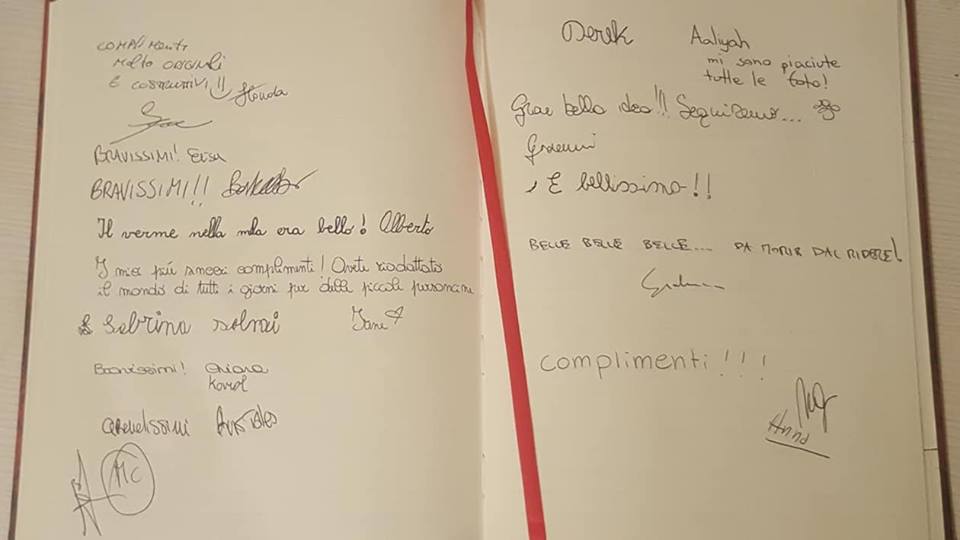 COMPLIMENTI
MOLTO ORIGINALI
E COSTRUTTIVI!!
BRAVISSIMI! Elisa
BRAVISSIMI!!
Il verme nella mela era bello! Alberto
I miei più sinceri complimenti! Avete riadattato
il mondo di tutti i giorni per delle piccole personcine
Jane
Sabrina
Bravissimi! Chiara
MC
Derek
Aaliyah
mi sono piaciute
tutte le foto!
bella idea!!! Seguiremo...
È bellissimo!!
BELLE BELLE BELLE... DA MORIR DAL RIDERE!
complimenti!!!
Anna